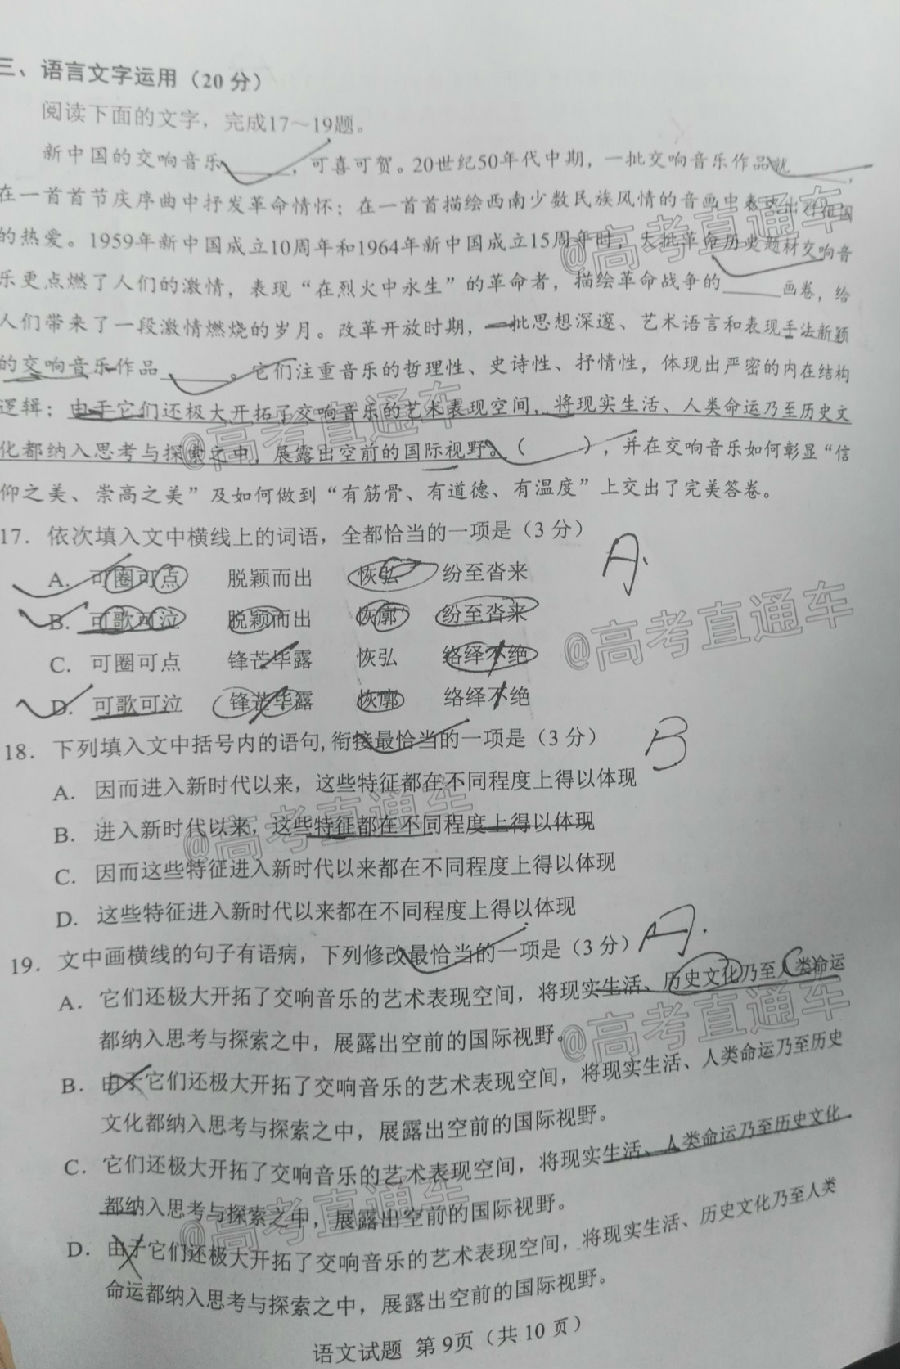 三、语言文字运用（20分）
阅读下面的文字，完成17～19题。
新中国的交响音乐______，可喜可贺。20世纪50年代中期，一批交响音乐作品就______，
在一首首节庆序曲中抒发革命情怀；在一首首描绘西南少数民族风情的音画中表达出对祖国
的热爱。1959年新中国成立10周年和1964年新中国成立15周年时，大批革命历史题材交响音
乐更点燃了人们的激情，表现“在烈火中永生”的革命者，描绘革命战争的______画卷，给
人们带来了一段激情燃烧的岁月。改革开放时期，一批思想深邃、艺术语言和表现手法新颖
的交响音乐作品______。它们注重音乐的哲理性、史诗性、抒情性，体现出严密的内在结构
逻辑；由于它们还极大开拓了交响音乐的艺术表现空间，将现实生活、人类命运乃至历史文
化都纳入思考与探索之中，展露出空前的国际视野。（　　），并在交响音乐如何彰显“信
仰之美、崇高之美”及如何做到“有筋骨、有道德、有温度”上交出了完美答卷。
17．依次填入文中横线上的词语，全都恰当的一项是（3分）
A．可圈可点　脱颖而出　恢弘　纷至沓来
A.
B．可歌可泣　脱颖而出　恢廓　纷至沓来
C．可圈可点　锋芒毕露　恢弘　络绎不绝
D．可歌可泣　锋芒毕露　恢廓　络绎不绝
18．下列填入文中括号内的语句,衔接最恰当的一项是（3分）
B
A．因而进入新时代以来，这些特征都在不同程度上得以体现
B．进入新时代以来，这些特征都在不同程度上得以体现
C．因而这些特征进入新时代以来都在不同程度上得以体现
D．这些特征进入新时代以来都在不同程度上得以体现
19．文中画横线的句子有语病，下列修改最恰当的一项是（3分）
A.
A．它们还极大开拓了交响音乐的艺术表现空间，将现实生活、历史文化乃至人类命运
都纳入思考与探索之中，展露出空前的国际视野。
B．由于它们还极大开拓了交响音乐的艺术表现空间，将现实生活、人类命运乃至历史
文化都纳入思考与探索之中，展露出空前的国际视野。
C．它们还极大开拓了交响音乐的艺术表现空间，将现实生活、人类命运乃至历史文化
都纳入思考与探索之中，展露出空前的国际视野。
D．由于它们还极大开拓了交响音乐的艺术表现空间，将现实生活、历史文化乃至人类
命运都纳入思考与探索之中，展露出空前的国际视野。
语文试题 第9页（共10页）
@高考直通车
@高考直通车
@高考直通车
@高考直通车
@高考直通车
@高考直通车